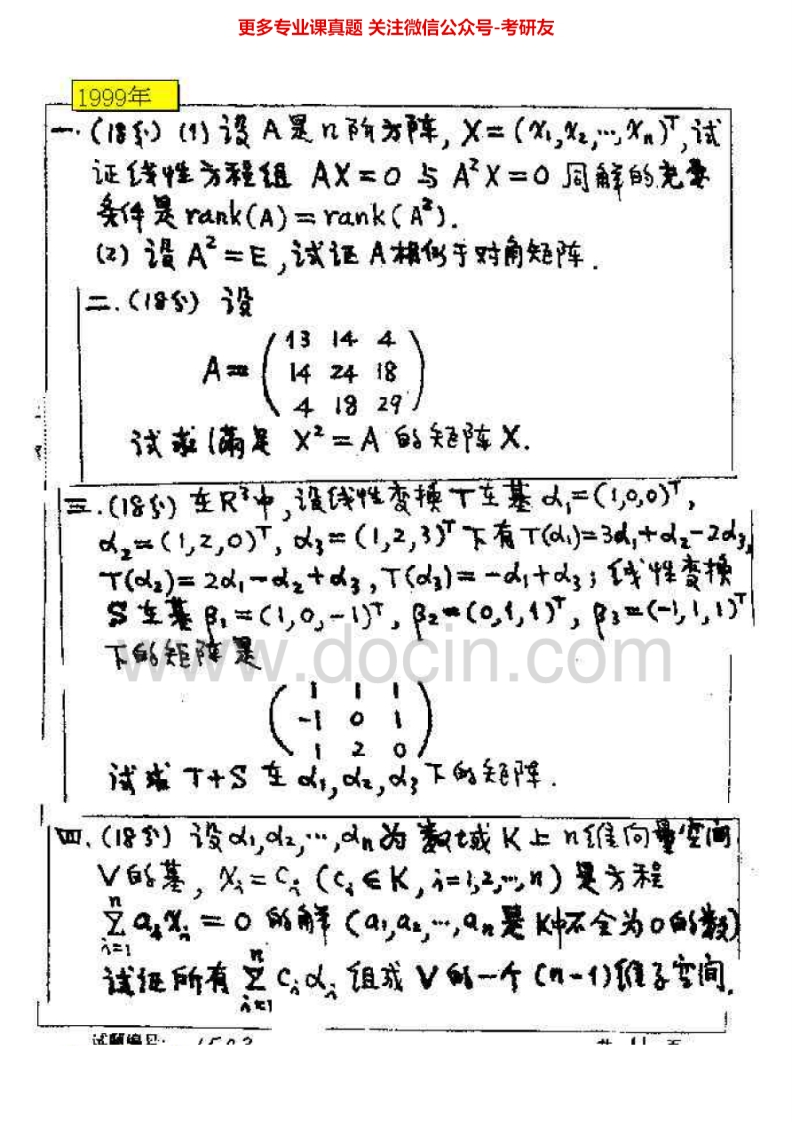 更多专业课真题 关注微信公众号-考研友
1999年
一.(18分)(1)设A是n阶方阵, X=(x₁,x₂,…,xₙ)ᵀ,试
证线性方程组 AX=0 与 A²X=0 同解的充要
条件是rank(A)=rank(A²).
(2) 设A²=E,试证A相似于对角矩阵.
二.(18分) 设
13 14 4
A= 14 24 18
4 18 29
试求满足 X²=A 的矩阵X.
三.(18分) 在R³中,设线性变换T在基α₁=(1,0,0)ᵀ,
α₂=(1,2,0)ᵀ, α₃=(1,2,3)ᵀ下有T(α₁)=3α₁+α₂-2α₃,
T(α₂)=2α₁-α₂+α₃,T(α₃)=-α₁+α₃;线性变换
S在基β₁=(1,0,-1)ᵀ, β₂=(0,1,1)ᵀ, β₃=(-1,1,1)ᵀ
下的矩阵是
www.docin.com
1 1 1
-1 0 1
1 2 0
试求 T+S 在α₁,α₂,α₃下的矩阵.
四.(18分) 设α₁,α₂,…,αₙ为数域K上n维向量空间
V的基, xᵢ=cᵢ (cᵢ∈K,i=1,2,…,n) 是方程
∑ⁿᵢ₌₁ aᵢxᵢ=0 的解 (a₁,a₂,…,aₙ是K中不全为0的数)
试证所有 ∑ⁿᵢ₌₁ cᵢαᵢ 组成V的一个(n-1)维子空间.
试题编号: